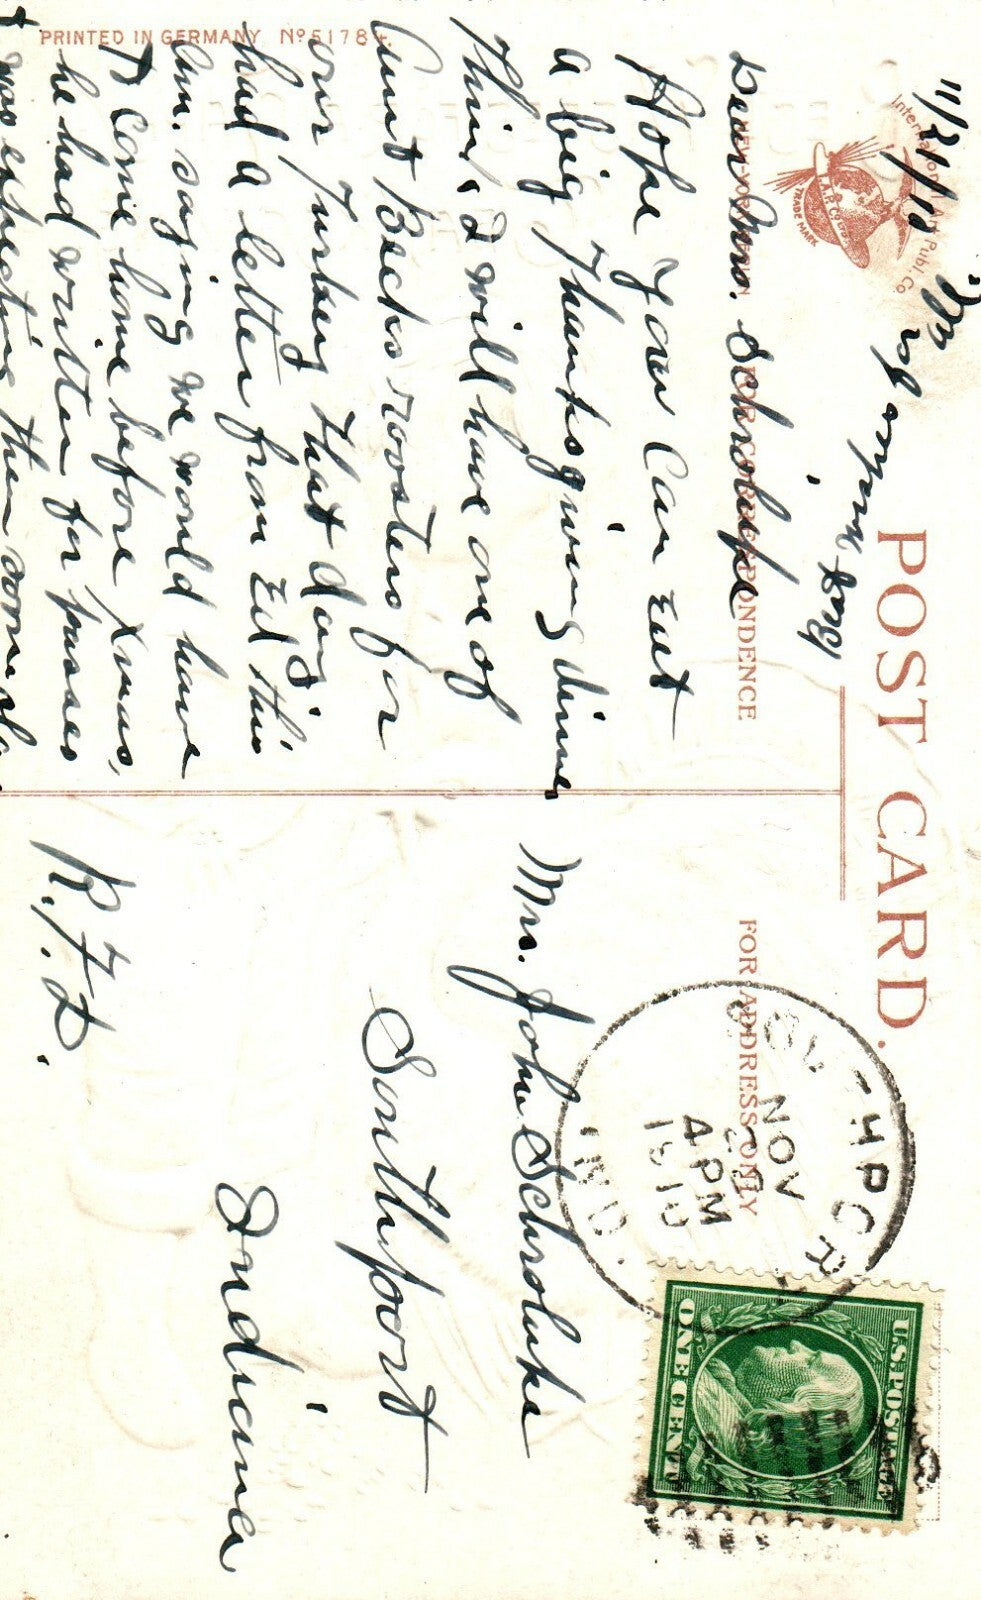 11/21/10
POST CARD.
International Art Publ. Co.
I.A.P. Co.
TRADE MARK
NEW YORK BERLIN
FOR CORRESPONDENCE
FOR ADDRESS ONLY
Dear Mrs. Schroluke
Hope you can eat
a big Thanksgiving dinner
think I will have one of
Aunt Becks roosters for
our Turkey that day
had a letter from Ed this
Am. saying we would have
to come home before Xmas,
he had written for passes
& was expecting them
Mrs. John Schroluke
Southport
Indiana
R.F.D.
SOUTHPORT
NOV
4 PM
1910
IND.
U.S. POSTAGE
ONE CENT
PRINTED IN GERMANY No 5178